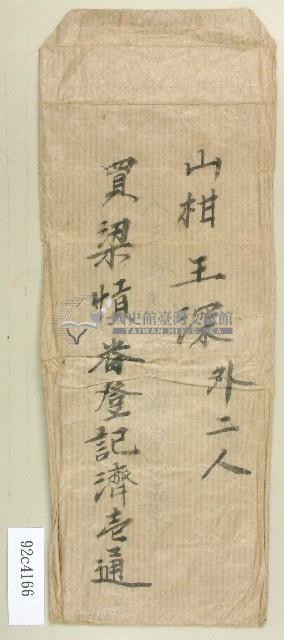 山柑王深外二人
買梁惜番登記濟壱通
國史館臺灣文獻館
TAIWAN HISTORICA
92c4166